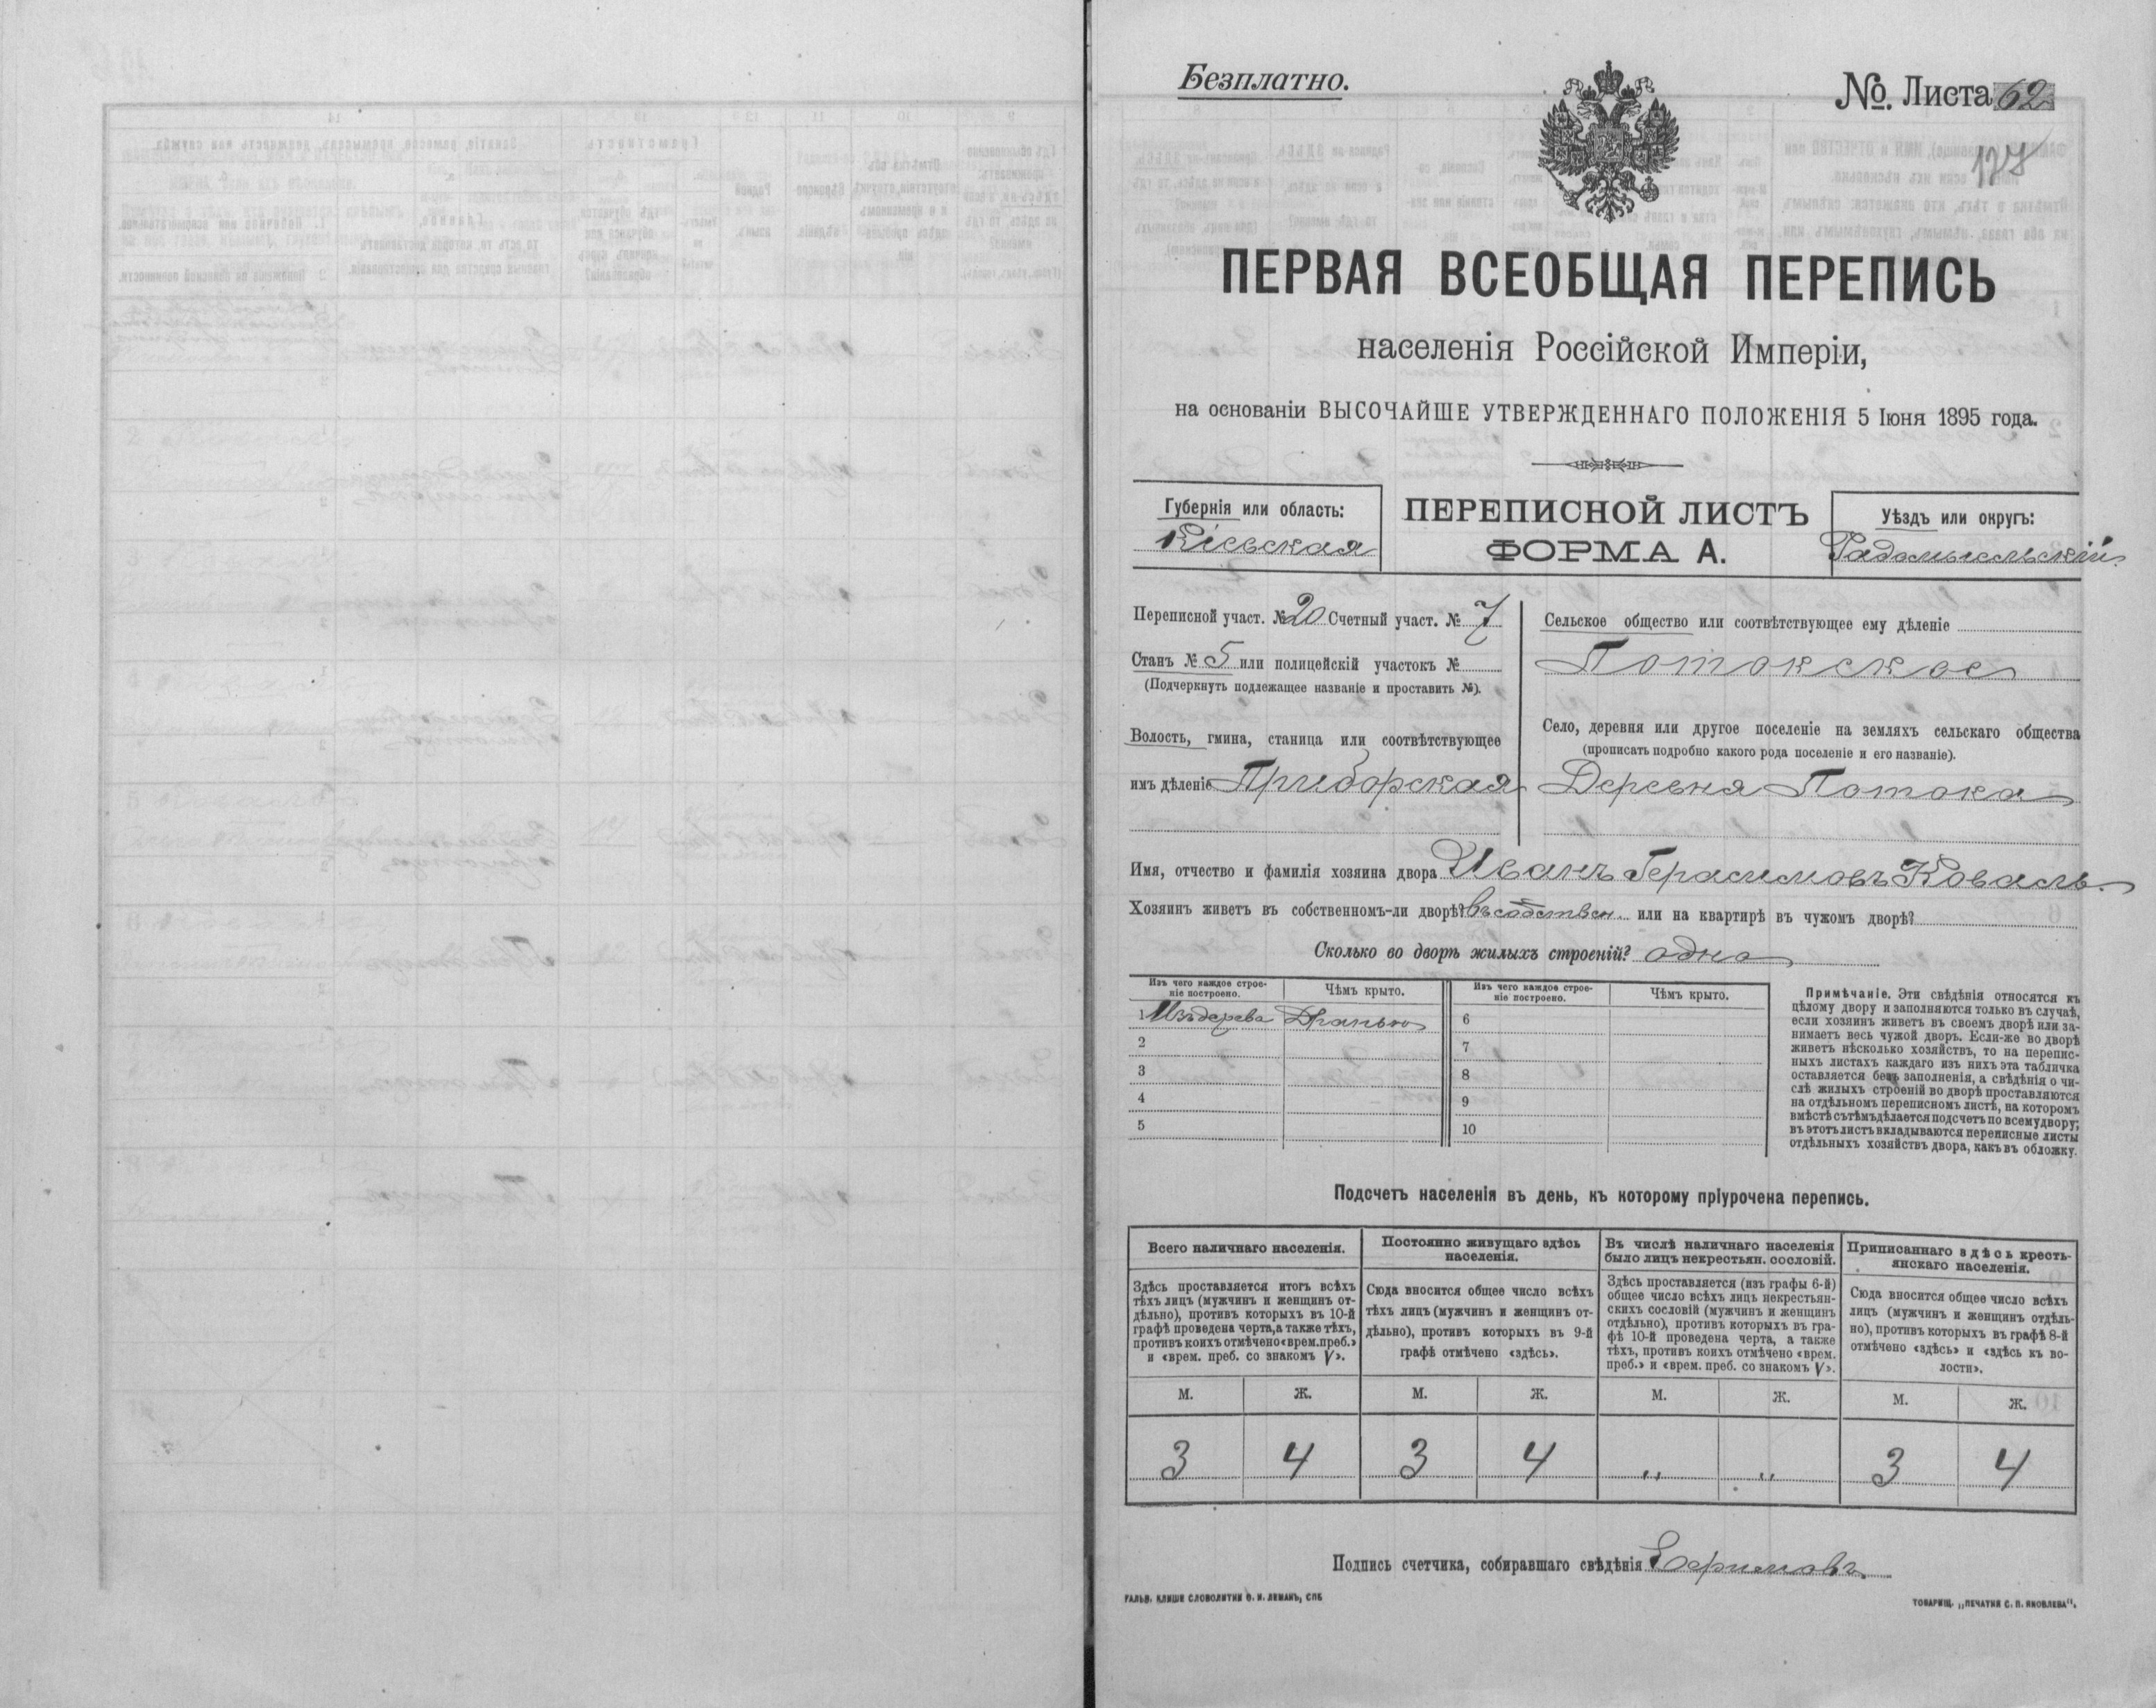 Безплатно.
№. Листа 62
ПЕРВАЯ ВСЕОБЩАЯ ПЕРЕПИСЬ
населенія Россійской Имперіи,
на основаніи ВЫСОЧАЙШЕ УТВЕРЖДЕННАГО ПОЛОЖЕНІЯ 5 Іюня 1895 года.
Губернія или область:
Кіевская
ПЕРЕПИСНОЙ ЛИСТЪ
ФОРМА А.
Уѣздъ или округъ:
Радомысльскій
Переписной участ. № 20 Счетный участ. № 7
Станъ № 5 или полицейскій участокъ №
(Подчеркнуть подлежащее названіе и проставить №).
Волость, гмина, станица или соотвѣтствующее
имъ дѣленіе Приборская
Сельское общество или соотвѣтствующее ему дѣленіе
Потокское
Село, деревня или другое поселеніе на земляхъ сельскаго общества
(прописать подробно какого рода поселеніе и его названіе).
Деревня Потока
Имя, отчество и фамилія хозяина двора Иванъ Герасимовъ Коваль.
Хозяинъ живетъ въ собственномъ-ли дворѣ? въ собствен. или на квартирѣ въ чужомъ дворѣ?
Сколько во дворѣ жилыхъ строеній? одно
Изъ чего каждое строе-
ніе построено.
Чѣмъ крыто.
Изъ чего каждое строе-
ніе построено.
Чѣмъ крыто.
1 Изъ дерева Дранью 6
2 7
3 8
4 9
5 10
Примѣчаніе. Эти свѣдѣнія относятся къ
цѣлому двору и заполняются только въ случаѣ,
если хозяинъ живетъ въ своемъ дворѣ или за-
нимаетъ весь чужой дворъ. Если-же во дворѣ
живетъ нѣсколько хозяйствъ, то на перепис-
ныхъ листахъ каждаго изъ нихъ эта табличка
оставляется безъ заполненія, а свѣдѣнія о чи-
слѣ жилыхъ строеній во дворѣ проставляются
на отдѣльномъ переписномъ листѣ, на которомъ
вмѣстѣ съ тѣмъ дѣлается подсчетъ по всему двору;
въ этотъ листъ вкладываются переписные листы
отдѣльныхъ хозяйствъ двора, какъ въ обложку.
Подсчетъ населенія въ день, къ которому пріурочена перепись.
Всего наличнаго населенія.
Здѣсь проставляется итогъ всѣхъ
тѣхъ лицъ (мужчинъ и женщинъ от-
дѣльно), противъ которыхъ въ 10-й
графѣ проведена черта, а также тѣхъ,
противъ коихъ отмѣчено «врем. преб.»
и «врем. преб. со знакомъ V».
Постоянно живущаго здѣсь
населенія.
Сюда вносится общее число всѣхъ
тѣхъ лицъ (мужчинъ и женщинъ от-
дѣльно), противъ которыхъ въ 9-й
графѣ отмѣчено «здѣсь».
Въ числѣ наличнаго населенія
было лицъ некрестьян. сословій.
Здѣсь проставляется (изъ графы 6-й)
общее число всѣхъ лицъ некрестьян-
скихъ сословій (мужчинъ и женщинъ
отдѣльно), противъ которыхъ въ гра-
фѣ 10-й проведена черта, а также
тѣхъ, противъ коихъ отмѣчено «врем.
преб.» и «врем. преб. со знакомъ V».
Приписаннаго здѣсь кресть-
янскаго населенія.
Сюда вносится общее число всѣхъ
лицъ (мужчинъ и женщинъ отдѣль-
но), противъ которыхъ въ графѣ 8-й
отмѣчено «здѣсь» и «здѣсь къ во-
лости».
М. Ж. М. Ж. М. Ж. М. Ж.
3 4 3 4 „ „ 3 4
Подпись счетчика, собиравшаго свѣдѣнія
ГАЛЬВ. КЛИШЕ СЛОВОЛИТНИ О. И. ЛЕМАНЪ, СПБ
ТОВАРИЩ. „ПЕЧАТНЯ С. П. ЯКОВЛЕВА".